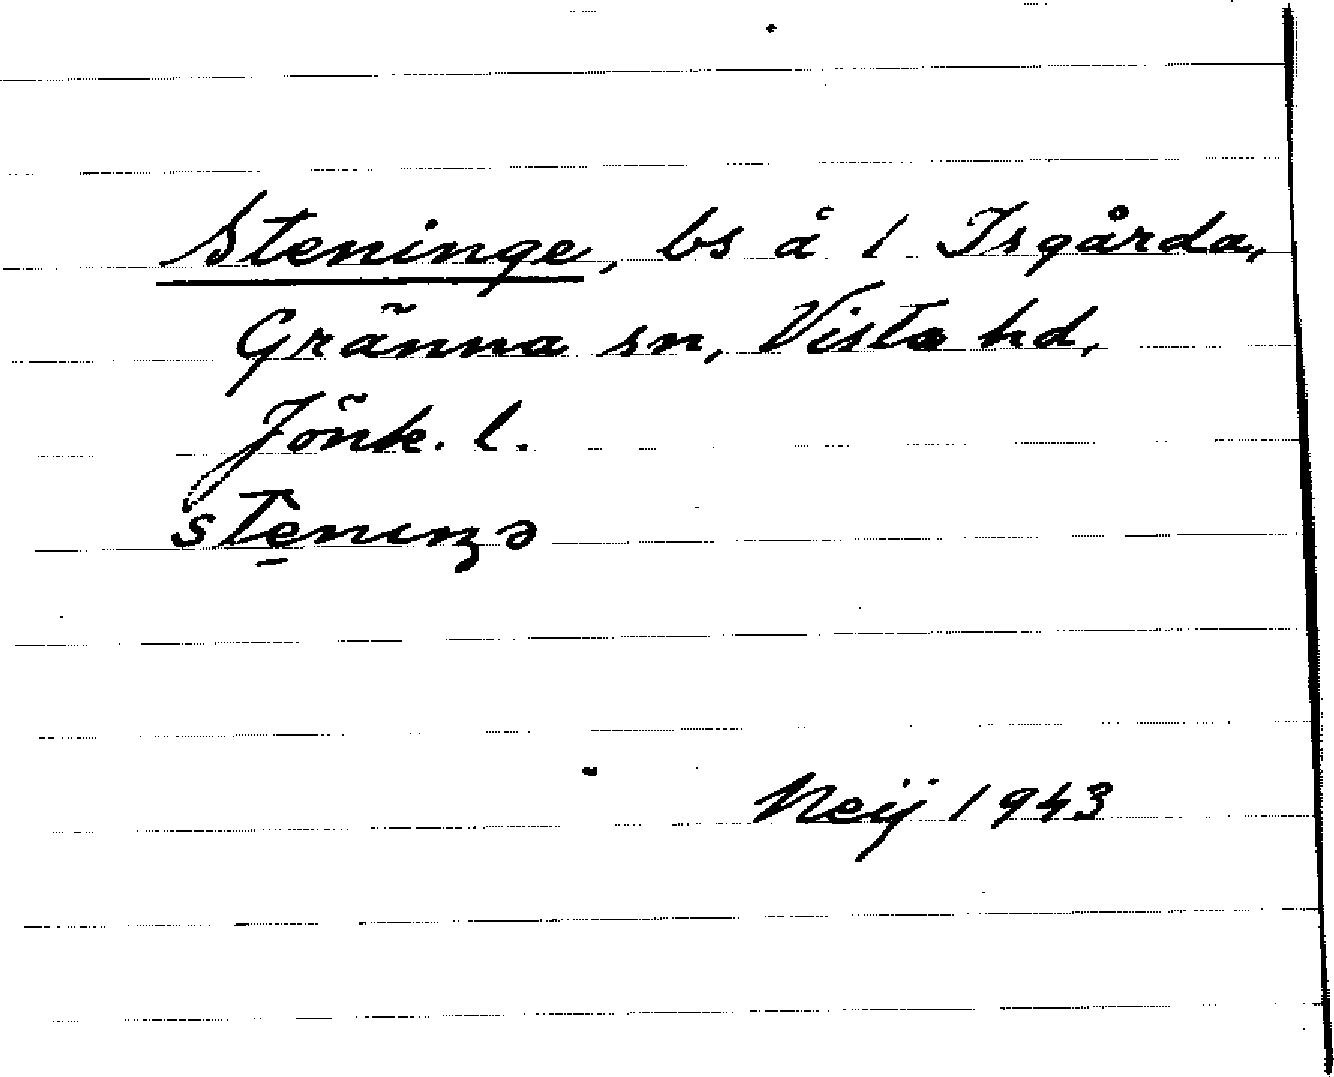 Steninge, bs å 1 Isgårda,
Gränna sn, Vista hd,
Jönk. l.
stẹnıŋə
Neij 1943